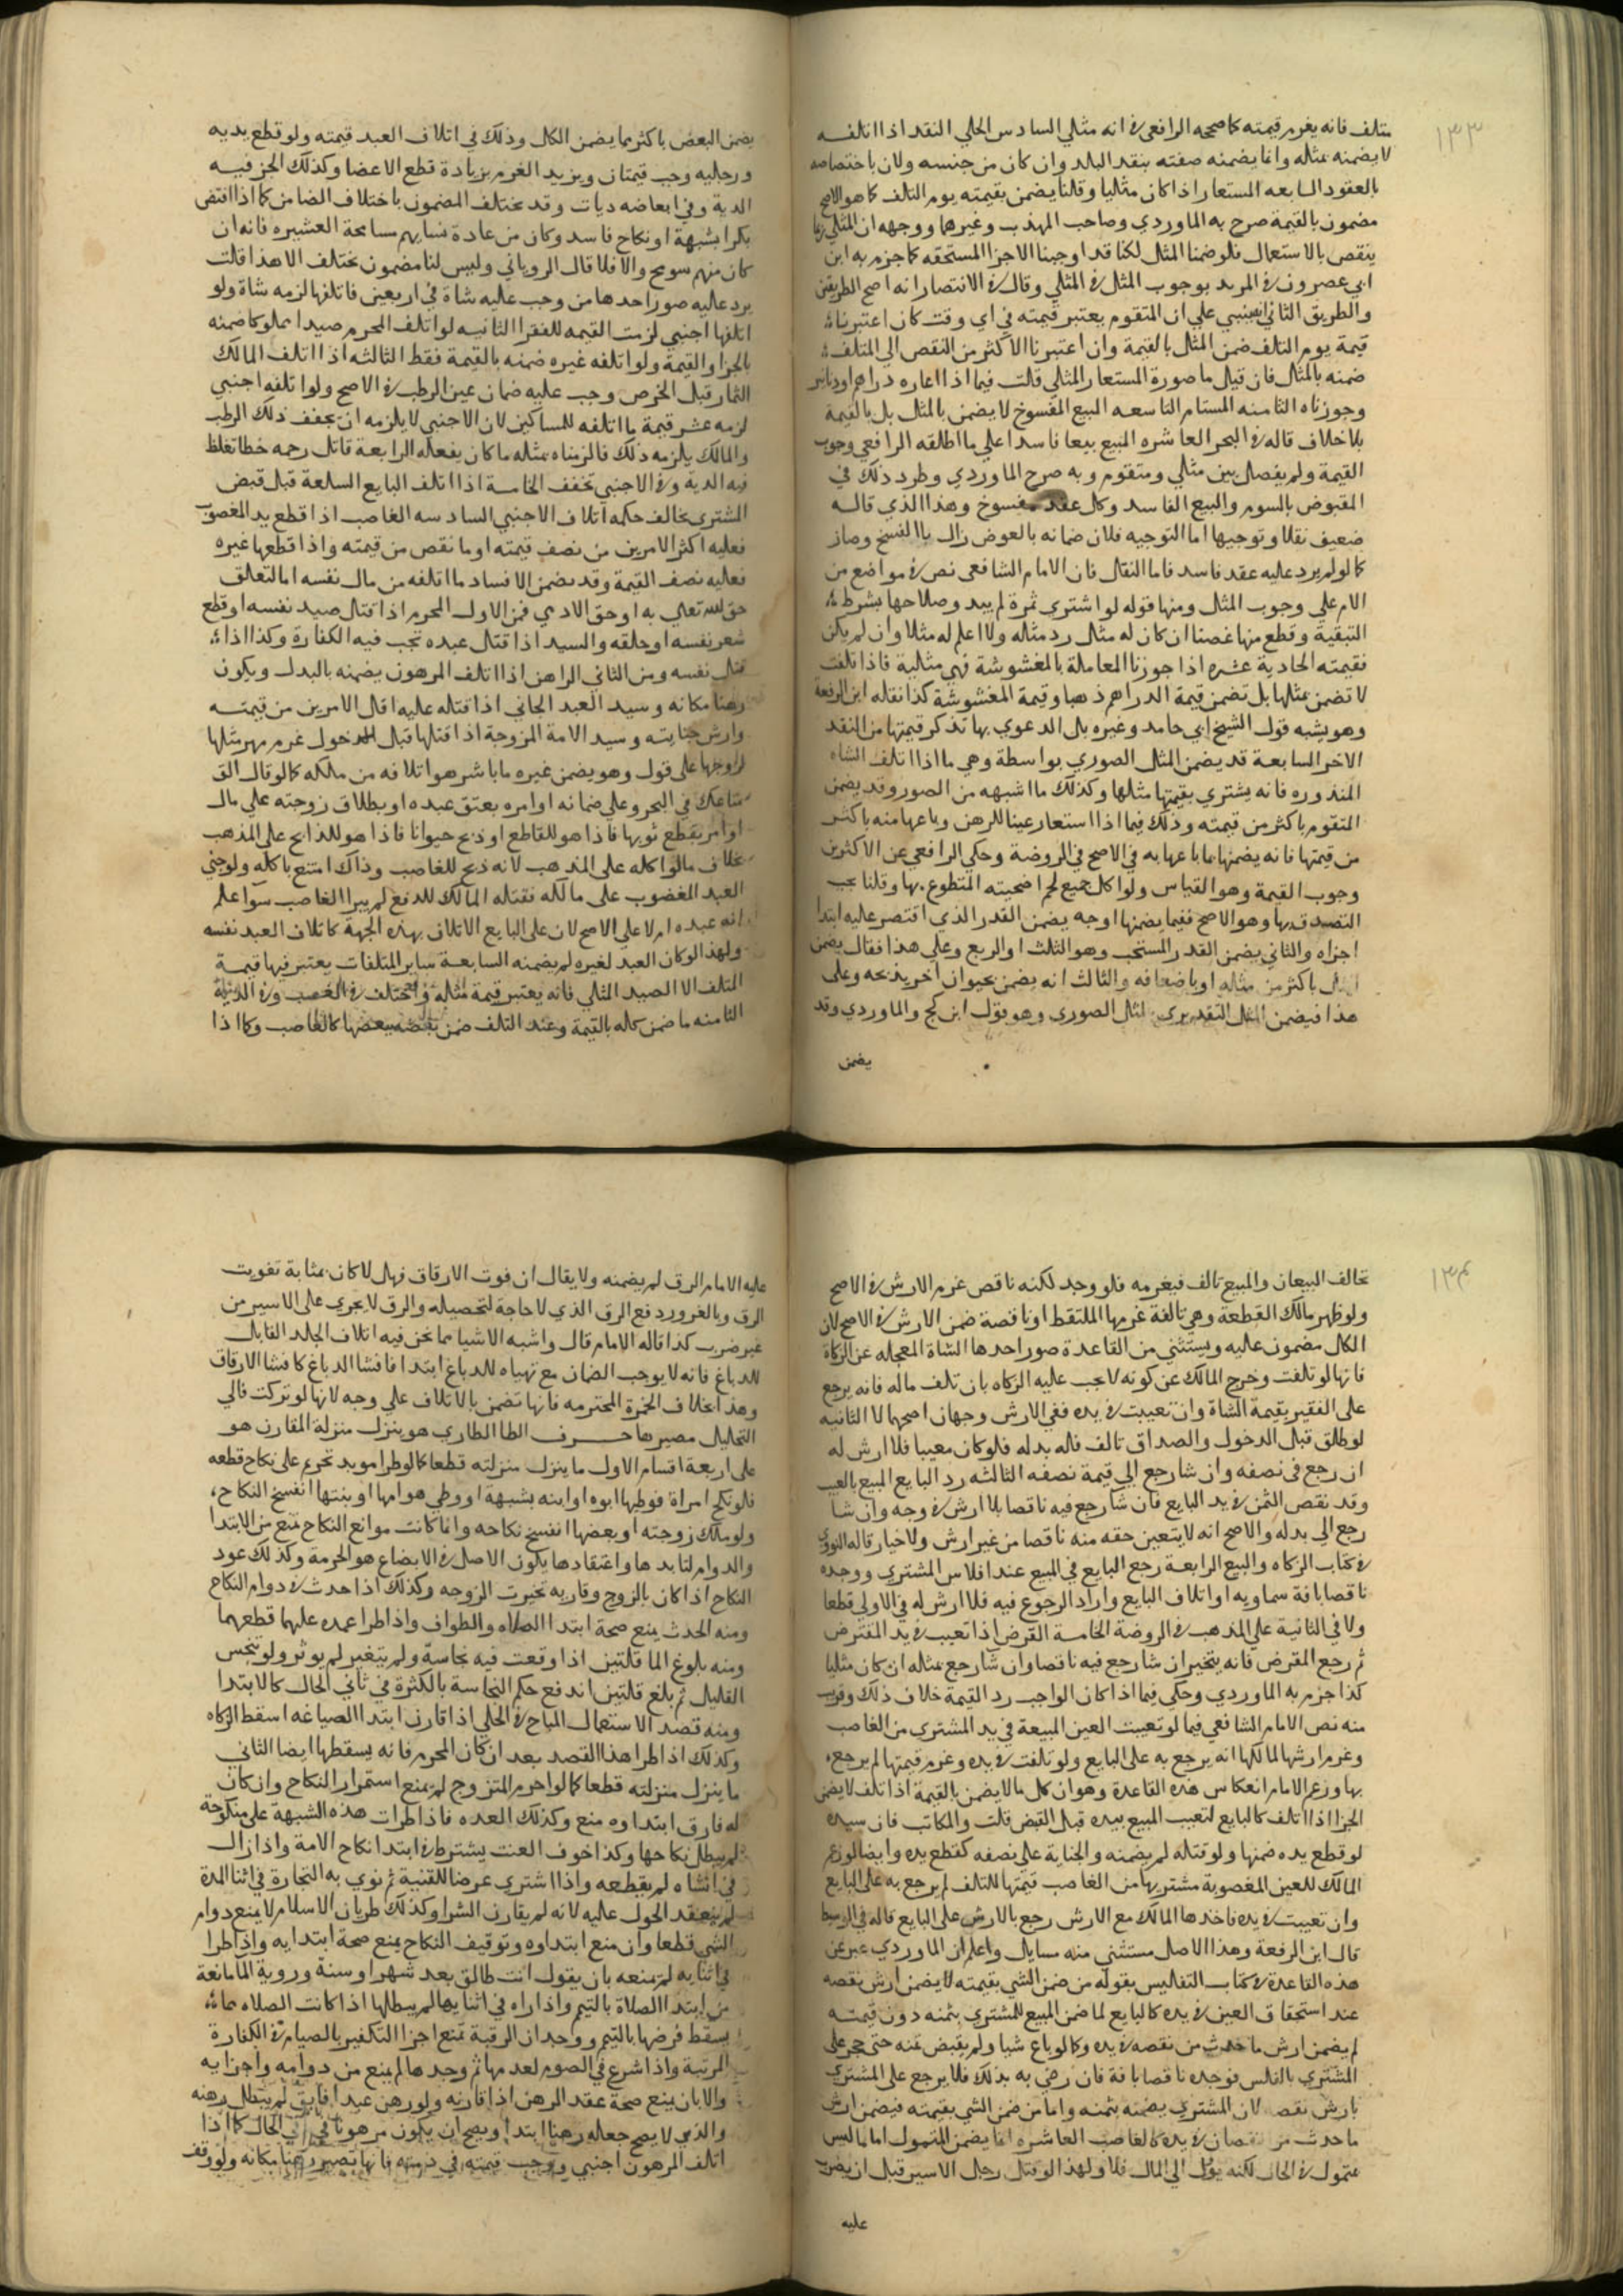 ١٣٣
متلف فانه يغرم قيمته كما صححه الرافعي في انه مثلي السادس الحلي النقد اذا اتلفه
لا يضمنه بمثله وانما يضمنه صفته بنقد البلد وان كان من جنسه ولان باختصاصه
بالعقود السابعه المستعار اذا كان مثليا وقلنا يضمن بقيمته يوم التلف كما هو الاصح
مضمون بالقيمة صرح به الماوردي وصاحب المهذب وغيرها ووجهه ان المثلي
ينقص بالاستعمال فلو ضمنا المثل لكنا قد اوجبنا الاجزا المستحقه كما جزم به ابن
ابي عصرون في المرىد بوجوب المثل في المثلي وقال في الانتصار انه اصح الطريقين
والطريق الثاني انه ينبني علي ان المتقوم يعتبر قيمته في اي وقت كان اعتبرنا
قيمة يوم التلف ضمن المثل بالقيمة وان اعتبرنا الاكثر من النقص الي المتلف
ضمنه بالمثل فان قيل ما صورة المستعار المثلي قلت فيما اذا اعاره دراهم او دنانير
وجوزناه الثامنه المستام التاسعه البيع المفسوخ لا يضمن بالمثل بل بالقيمة
بلا خلاف قاله في البحر العاشره المبيع بيعا فاسدا علي ما اطلقه الرافعي وجوب
القيمة ولم يفصل بين مثلي ومتقوم وبه صرح الماوردي وطرد ذلك في
المقبوض بالسوم والبيع الفاسد وكل عقد مفسوخ وهذا الذي قاله
ضعيف نقلا وتوجيها اما التوجيه فلان ضمانه بالعوض زال بالفسخ وصار
كما لو لم يرد عليه عقد فاسد فاما النقل فان الامام الشافعي نص في مواضع من
الام علي وجوب المثل ومنها قوله لو اشتري ثمرة لم يبد وصلاحها بشرط
التبقية وقطع منها غصنا ان كان له مثل رد مثله ولا اعلم له مثلا وان لم يكن
فقيمته الحادية عشره اذا جوزنا المعاملة بالمغشوشة فهي مثلية فاذا تلفت
لا تضمن بمثلها بل تضمن قيمة الدراهم ذهبا وقيمة المغشوشة كذا نقله ابن الرفعة
وهو يشبه قول الشيخ ابي حامد وغيره بل الدعوي بها تذكر قيمتها من النقد
الاخر السابعة قد يضمن المثل الصوري بواسطة وهي ما اذا اتلف الشاه
المنذوره فانه يشتري بقيمتها مثلها وكذلك ما اشبهه من الصور وقد يضمن
المتقوم باكثر من قيمته وذلك فيما اذا استعار عينا للرهن وباعها منه باكثر
من قيمتها فانه يضمنها بما باعها به في الاصح في الروضة وحكي الرافعي عن الاكثرين
وجوب القيمة وهو القياس ولو اكل جميع لحم اضحيته المتطوع بها وقلنا يجب
التصدق بها وهو الاصح ففيما يضمنها اوجه يضمن القدر الذي اقتصر عليه ابتدا
اجزاه والثاني يضمن القدر المستحب وهو الثلث او الربع وعلي هذا فقال يضمن
المثل باكثر من مثله او باضعافه والثالث انه يضمن بحيوان اخر يذبحه وعلي
هذا فيضمن المثل التقديري المثل الصوري وهو قول ابن كج والماوردي وقد
يضمن
يضمن البعض باكثر مما يضمن الكل وذلك في اتلاف العبد قيمته ولو قطع يديه
ورجليه وجب قيمتان ويزيد الغرم بزيادة قطع الاعضا وكذلك الجز فيه
الدية وفي ابعاضه ديات وقد يختلف المضمون باختلاف الضامن كما اذا افتض
بكرا بشبهة او نكاح فاسد وكان من عادة نسايهم مسامحة العشيره فانه ان
كان منهم سومح والا فلا قال الروياني وليس لنا مضمون يختلف الا هذا قلت
يرد عليه صور احدها من وجب عليه شاة في اربعين فاتلفها لزمه شاة ولو
اتلفها اجنبي لزمت القيمه للفقرا الثانيه لو اتلف المحرم صيدا مملوكا ضمنه
بالجزا والقيمة ولو اتلفه غيره ضمنه بالقيمة فقط الثالثه اذا اتلف المالك
الثمار قبل الخرص وجب عليه ضمان عين الرطب في الاصح ولو اتلفه اجنبي
لزمه عشر قيمة ما اتلفه للمساكين لان الاجنبي لا يلزمه ان يجفف ذلك الرطب
والمالك يلزمه ذلك فالزمناه بمثله ما كان يفعله الرابعة قاتل رحمه خطا تغلظ
فيه الدية وفي الاجنبي تخفف الخامسة اذا اتلف البايع السلعة قبل قبض
المشتري يخالف حكمه اتلاف الاجنبي السادسه الغاصب اذا قطع يد المغصوب
فعليه اكثر الامرين من نصف قيمته او ما نقص من قيمته واذا قطعها غيره
فعليه نصف القيمة وقد يضمن الانسان ما اتلفه من مال نفسه اما لتعلق
حق لله تعالي به او حق الادمي فمن الاول المحرم اذا قتل صيد نفسه او قطع
شعر نفسه او حلقه والسيد اذا قتل عبده تجب فيه الكفارة وكذا اذا
قتل نفسه ومن الثاني الراهن اذا اتلف المرهون يضمنه بالبدل ويكون
رهنا مكانه وسيد العبد الجاني اذا قتله عليه اقل الامرين من قيمته
وارش جنايته وسيد الامة المزوجة اذا قتلها قبل الدخول غرم مهر مثلها
لزوجها على قول وهو يضمن غيره ما باشر هو اتلافه من مالكه كما لو قال الق
متاعك في البحر وعلي ضمانه او امره بعتق عبده او بطلاق زوجته علي مال
او امر بقطع ثوبها فاذا هو للقاطع او ذبح حيوانا فاذا هو للذابح على المذهب
بخلاف ما لو اكله على المذهب لانه ذبح للغاصب وذاك امتنع باكله ولو جني
العبد المغضوب على مالكه فقتله المالك للدفع لم يبرا الغاصب سوا علم
انه عبده ام لا علي الاصح لان على البايع الاتلاف بهذه الجهة كاتلاف العبد نفسه
ولهذا لو كان العبد لغيره لم يضمنه السابعة ساير المتلفات يعتبر فيها قيمة
المتلف الا الصيد المثلي فانه يعتبر قيمة مثله
الثامنه ما ضمن كله بالقيمة وعند التلف ضمن بعضه ببعضها كالغاصب وكما اذا
١٣٤
تخالف البيعان والمبيع تالف فيغرمه فلو وجد لكنه ناقص غرم الارش في الاصح
ولو ظهر مالك القطعة وهي تالفة غرمها الملتقط او ناقصة ضمن الارش في الاصح لان
الكل مضمون عليه ويستثني من القاعدة صور احدها الشاة المعجله عن الزكاة
فانها لو تلفت وخرج المالك عن كونه لا يجب عليه الزكاه بان تلف ماله فانه يرجع
على الفقير بقيمة الشاة وان تعيبت في يده ففي الارش وجهان اصحهما لا الثانيه
لو طلق قبل الدخول والصداق تالف فله بدله فلو كان معيبا فلا ارش له
ان رجع في نصفه وان شا رجع الي قيمة نصفه الثالثه رد البايع المبيع بالعيب
وقد نقص الثمن في يد البايع فان شا رجع فيه ناقصا بلا ارش في وجه وان شا
رجع الي بدله والاصح انه لا يتعين حقه منه ناقصا من غير ارش ولا خيار قاله النووي
في كتاب الزكاه والبيع الرابعة رجع البايع في المبيع عند افلاس المشتري ووجده
ناقصا بافة سماويه او اتلاف البايع واراد الرجوع فيه فلا ارش له في الاولي قطعا
ولا في الثانية علي المذهب في الروضة الخامسة القرض اذا تعيب في يد المقترض
ثم رجع المقرض فانه يتخير ان شا رجع فيه ناقصا وان شا رجع بمثله ان كان مثليا
كذا جزم به الماوردي وحكي فيما اذا كان الواجب رد القيمة خلاف ذلك وقريب
منه نص الامام الشافعي فيما لو تعيبت العين المبيعة في يد المشتري من الغاصب
وغرم ارشها لمالكها انه يرجع به على البايع ولو تلفت في يده وغرم قيمتها لم يرجع
بها وزعم الامام انعكاس هذه القاعدة وهو ان كل ما لا يضمن بالقيمة اذا تلف لا يضمن
الجزا اذا اتلف كالبايع لتعيب المبيع بيده قبل القبض قلت والمكاتب فان سيده
لو قطع يده ضمنها ولو قتله لم يضمنه والجناية على نصفه كقطع يده وايضا لو زعم
المالك للعين المغصوبة مشتريها من الغاصب قيمتها للتلف لم يرجع به على البايع
وان تعيبت في يده فاخذها المالك مع الارش رجع بالارش على البايع قاله في الوسيط
قال ابن الرفعة وهذا الاصل مستثني منه مسايل واعلم ان الماوردي عبر عن
هذه القاعدة في كتاب التفاليس بقوله من ضمن الشي بقيمته لا يضمن ارش نقصه
عند استحقاق العين في يده كالبايع لما ضمن المبيع للمشتري بثمنه دون قيمته
لم يضمن ارش ما حدث من نقصه في يده وكما لو باع شيا ولم يقبض ثمنه حتى حجر على
المشتري بالفلس فوجده ناقصا بافة فان رضي به بذلك فلا يرجع على المشتري
بارش نقصه لان المشتري يضمنه بثمنه واما من ضمن الشي بقيمته فيضمن ارش
ما حدث من نقصان في يده كالغاصب العاشره انما يضمن المتمول اما ما ليس
بمتمول في الحال لكنه يؤل الي المال فلا ولهذا لو قتل رجل الاسير قبل ان يضرب
عليه
عليه الامام الرق لم يضمنه ولا يقال ان فوت الارقاق فهل لا كان بمثابة تفويت
الرق وبالغرور دفع الرق الذي لا حاجة لتحصيله والرق لا يجري على الاسير من
غير ضرب كذا قاله الامام قال واشبه الاشيا بما نحن فيه اتلاف الجلد القابل
للدباغ فانه لا يوجب الضمان مع تهياه للدباغ ابتدا فانشا الدباغ كانشا الارقاق
وهذا بخلاف الخمرة المحترمه فانها تضمن بالاتلاف علي وجه لانها لو تركت فالي
التخليل مصيرها حرف الطا الطاري هو ينزل منزلة المقارن هو
على اربعة اقسام الاول ما ينزل منزلته قطعا كما لو طرا موبد تحريم على نكاح قطعه
فلو نكح امراة فوطيها ابوه او ابنه بشبهة او وطي هو امها او بنتها انفسخ النكاح
ولو ملك زوجته او بعضها انفسخ نكاحه وانما كانت موانع النكاح تمنع من الابتدا
والدوام لتابدها واعتقادها يكون الاصل في الابضاع هو الحرمة وكذلك عود
النكاح اذا كان بالزوج وقاربه تخيرت الزوجه وكذلك اذا حدث في دوام النكاح
ومنه الحدث يمنع صحة ابتدا الصلاه والطواف واذا طرا عمده عليهما قطعهما
ومنه بلوغ الما قلتين اذا وقعت فيه نجاسة ولم يتغير لم يوثر ولو تنجس
القليل ثم بلغ قلتين اندفع حكم النجاسة بالكثرة في ثاني الحال كالابتدا
ومنه قصد الاستعمال المباح في الحلي اذا قارن ابتدا الصياغه اسقط الزكاه
وكذلك اذا طرا هذا القصد بعد ان كان المحرم فانه يسقطها ايضا الثاني
ما ينزل منزلته قطعا كما لو احرم المتزوج لم يمنع استمرار النكاح وان كان
له فارق ابتداوه منع وكذلك العده فاذا طرات هذه الشبهة على منكوحة
لم يبطل نكاحها وكذا خوف العنت يشترط في ابتدا نكاح الامة واذا زال
في انشاه لم يقطعه واذا اشتري عرضا للقنية ثم نوي به التجارة في اثنا المدة
لم ينعقد الحول عليه لانه لم يقارن الشرا وكذلك طريان الاسلام لا يمنع دوام
الشي قطعا وان منع ابتداوه وتوقيف النكاح يمنع صحة ابتدايه واذا طرا
في اثنايه لم يمنعه بان يقول انت طالق بعد شهر او سنة وروية الما مانعة
من ابتدا الصلاة بالتيمم واذا راه في اثنايها لم يبطلها اذا كانت الصلاه مما
يسقط فرضها بالتيمم ووجدان الرقبة تمنع اجزا التكفير بالصيام في الكفارة
المرتبة واذا شرع في الصوم لعدمها ثم وجدها لم يمنع من دوامه واجزايه
والاباق يمنع صحة عقد الرهن اذا قارنه ولو رهن عبدا فابق لم يبطل رهنه
والدين لا يصح جعله رهنا ابتدا ويصح ان يكون مرهونا في ثاني الحال كما اذا
اتلف المرهون اجنبي ووجب قيمته في ذمته فانها تصير رهنا مكانه ولو وقف